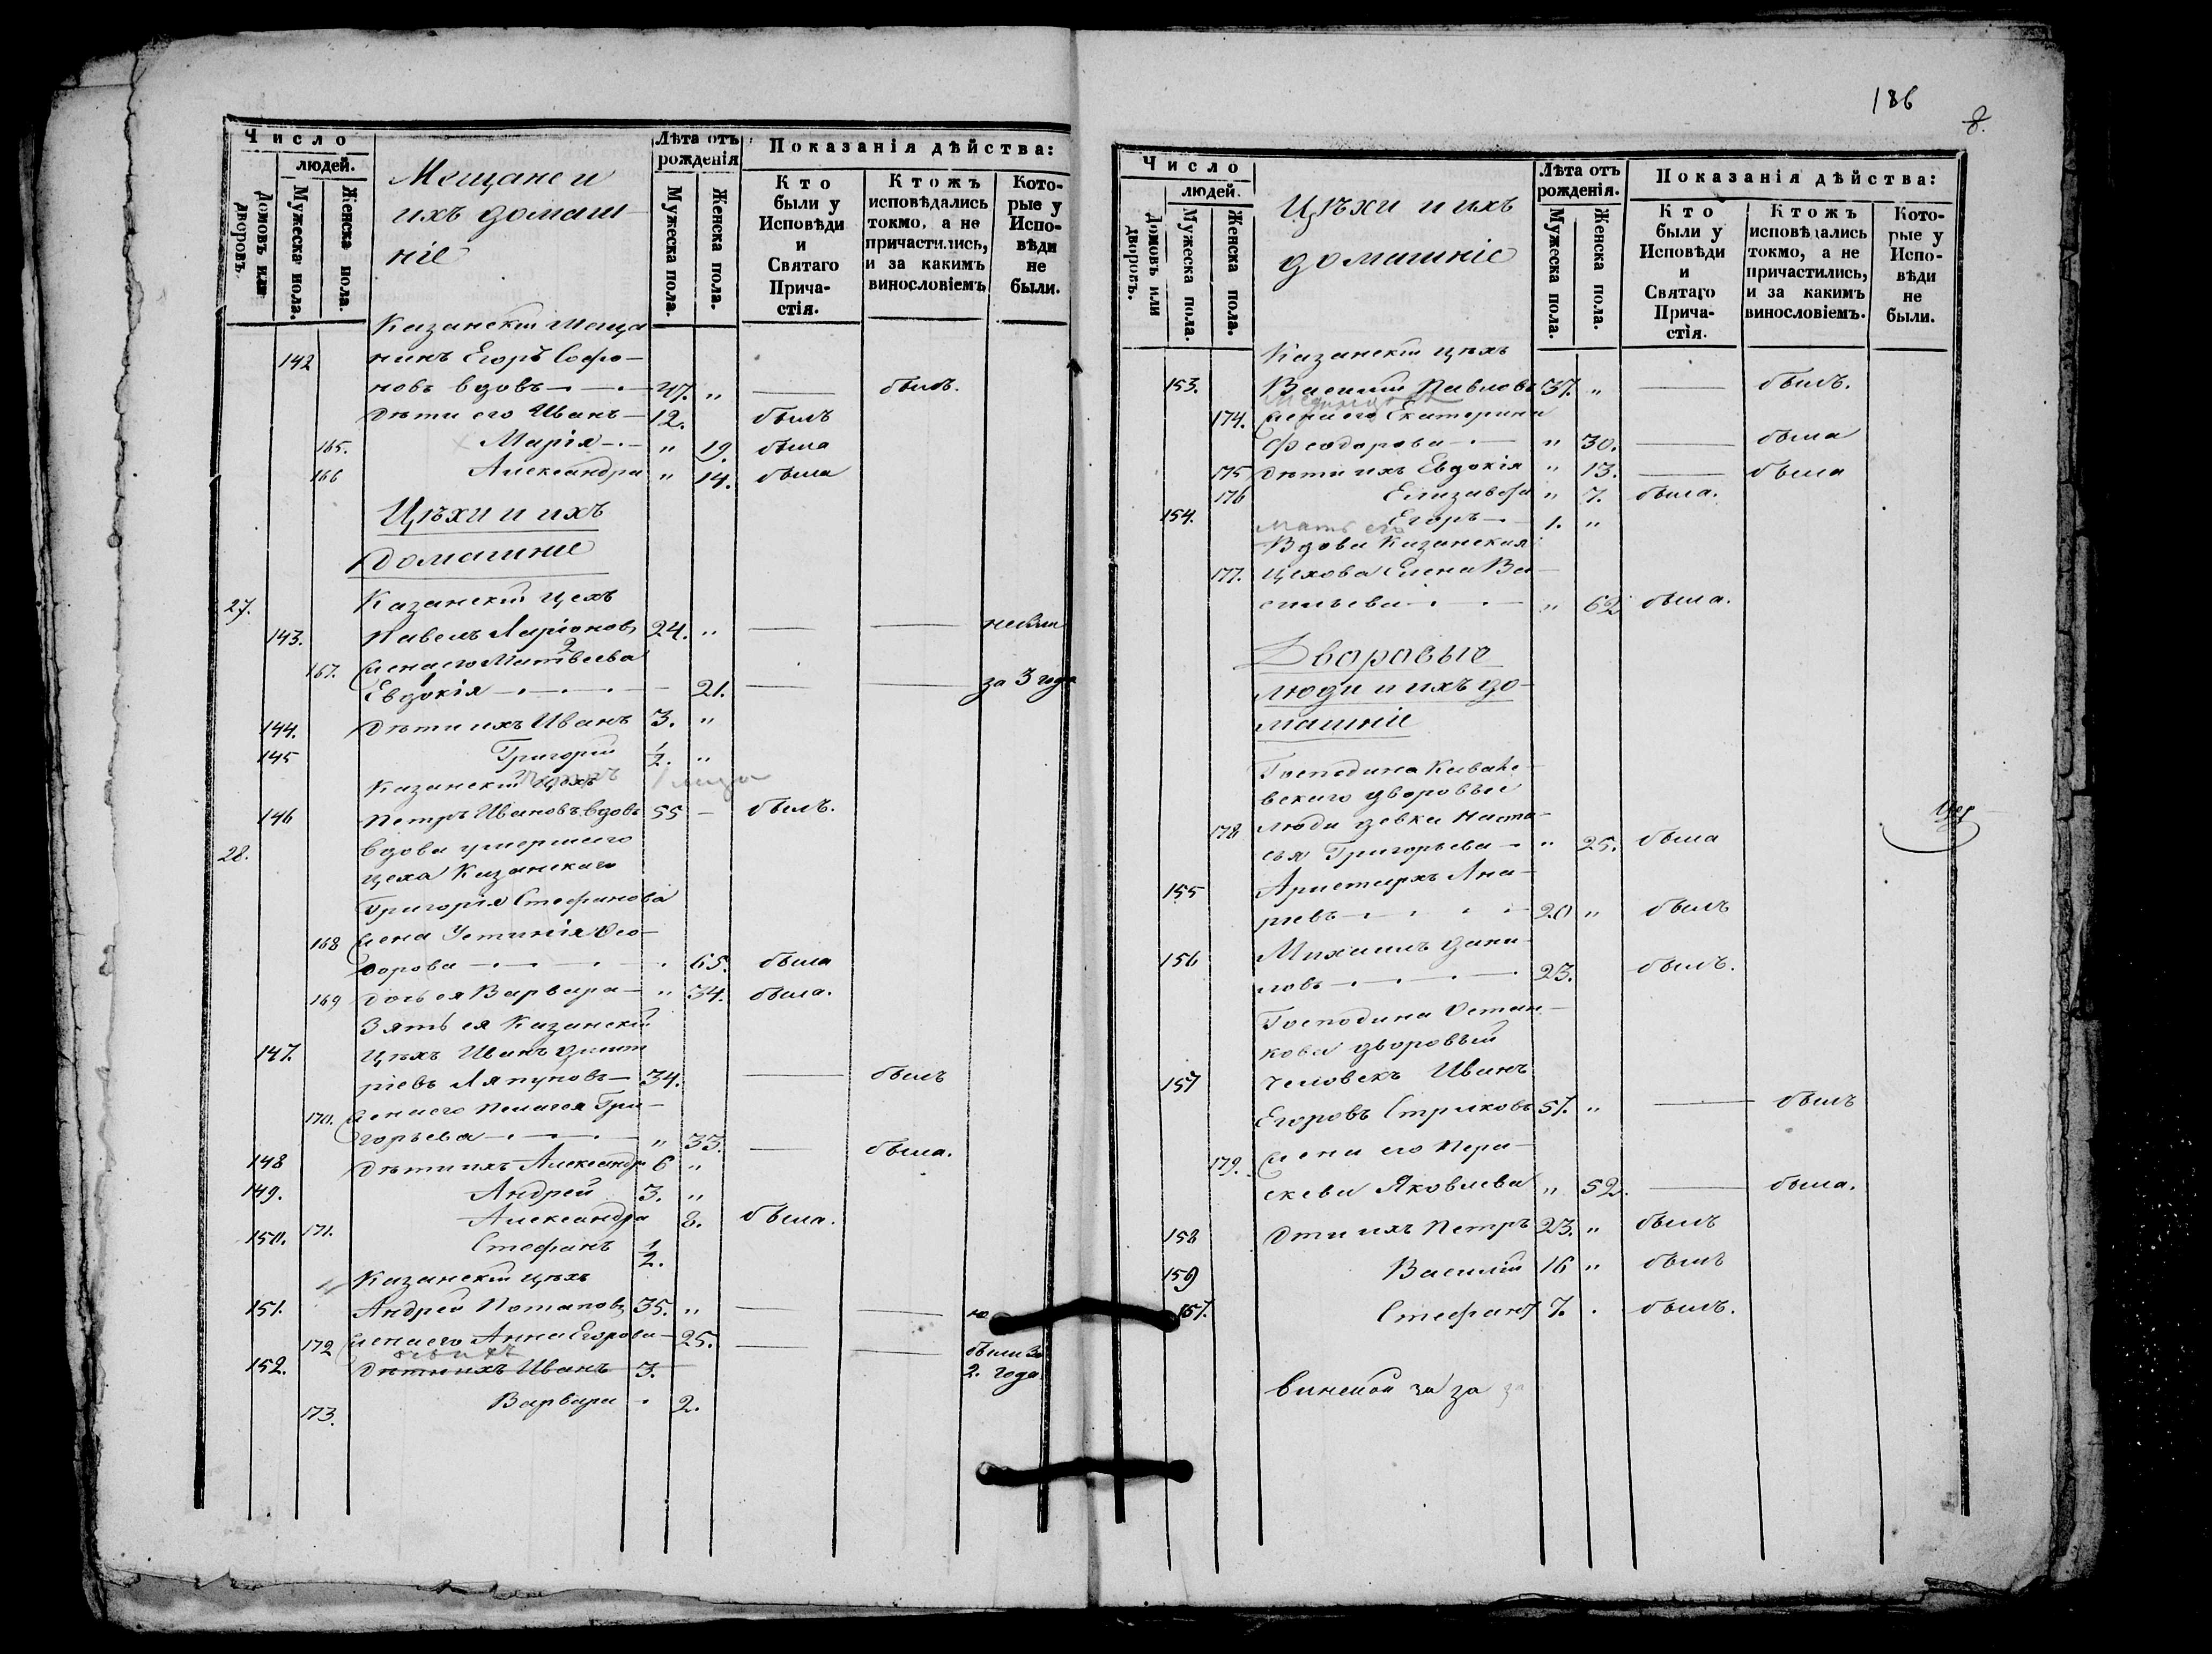 186
8.
Число
людей.
Домовъ или дворовъ.
Мужеска пола.
Женска пола.
Мещане и
ихъ домаш-
ніе
Лѣта отъ
рожденія
Мужеска пола.
Женска пола.
Показанія дѣйства:
Кто
были у
Исповѣди
и
Святаго
Прича-
стія.
Ктожъ
исповѣдались
токмо, а не
причастились,
и за какимъ
винословіемъ
Кото-
рые у
Испо-
вѣди
не
были.
Казанскій меща
142 нинъ Егоръ Софро-
новъ вдовъ 47. „ — былъ.
Дѣти его Иванъ 12. былъ
165. Марія „ 19. была
166 Александра „ 14. была
Цѣхи и ихъ
Домашніе
27. Казанскій цехъ
143. Павелъ Ларіоновъ 24. „ — —
167. Жена его Матвеева
Евдокія — 21. — — за 3 года
144. Дѣти ихъ Иванъ 3. „
145 Григорій 1/2. „
Казанскій цехъ
146 Петръ Ивановъ вдовъ 55 — былъ.
28. Вдова умершаго
цеха Казанскаго
Григорія Стефанова
168 жена Устинія Ѳео-
дорова 65. была
169 дочь ея Варвара „ 34. была.
Зять ея Казанскій
147. Цѣхъ Иванъ Дмит
ріевъ Ляпуновъ 34. — былъ
170. Жена его Пелагея Гри-
горьева „ 33. — была.
148 Дѣти ихъ Александр 6 „
149. Андрей 3. „
171. Александра 8. была.
150. Стефанъ 1/2.
Казанскій цѣхъ
151. Андрей Потаповъ 35. „ — — не
172 Жена его Анна Егорова 25. — — были за
152. Дѣти ихъ Иванъ 3. 2. года
173. Варвара 2.
Число
людей.
Домовъ или дворовъ.
Мужеска пола.
Женска пола.
Цѣхи и ихъ
домашніе
Лѣта отъ
рожденія.
Мужеска пола.
Женска пола.
Показанія дѣйства:
Кто
были у
Исповѣди
и
Святаго
Прича-
стія.
Ктожъ
исповѣдались
токмо, а не
причастились,
и за какимъ
винословіемъ.
Кото-
рые у
Испо-
вѣди
не
были.
Казанскій цѣхъ
153. Василій Павловъ 37. „ — былъ.
174. Жена его Екатерина
Феодорова „ 30. — была
175 Дѣти ихъ Евдокія „ 13. — была
176 Елизавефа „ 7. была.
154. Егоръ 1. „
мать его
Вдова Казанская
177. Цехова Елена Ва-
сильева „ 62 была.
Дворовые
люди и ихъ до-
машніе
Господина
дворовые
178 люди девка Наста-
сья Григорьева „ 25. была
155 Аристархъ Ана-
ріевъ 20 „ былъ
156 Михаилъ Дани-
ловъ 23. былъ.
Господина Остан-
кова дворовый
157 человекъ Иванъ
Егоровъ Стрижовъ 57. „ — былъ
179. Жена его Пера-
скева Яковлева „ 52. — была.
158 Дти ихъ Петръ 23. „ былъ
159 Василій 16 „ былъ
157. Стефанъ 7. былъ.
за за